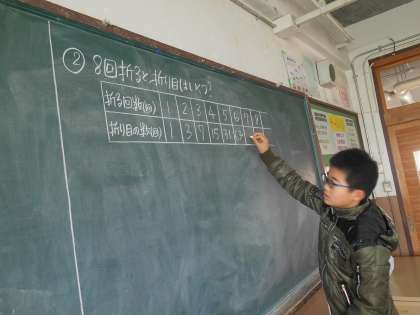 ② 8回折ると折り目はいくつ?
折る回数(回) 1 2 3 4 5 6 7 8
折り目の数(回) 1 3 7 15 31 63